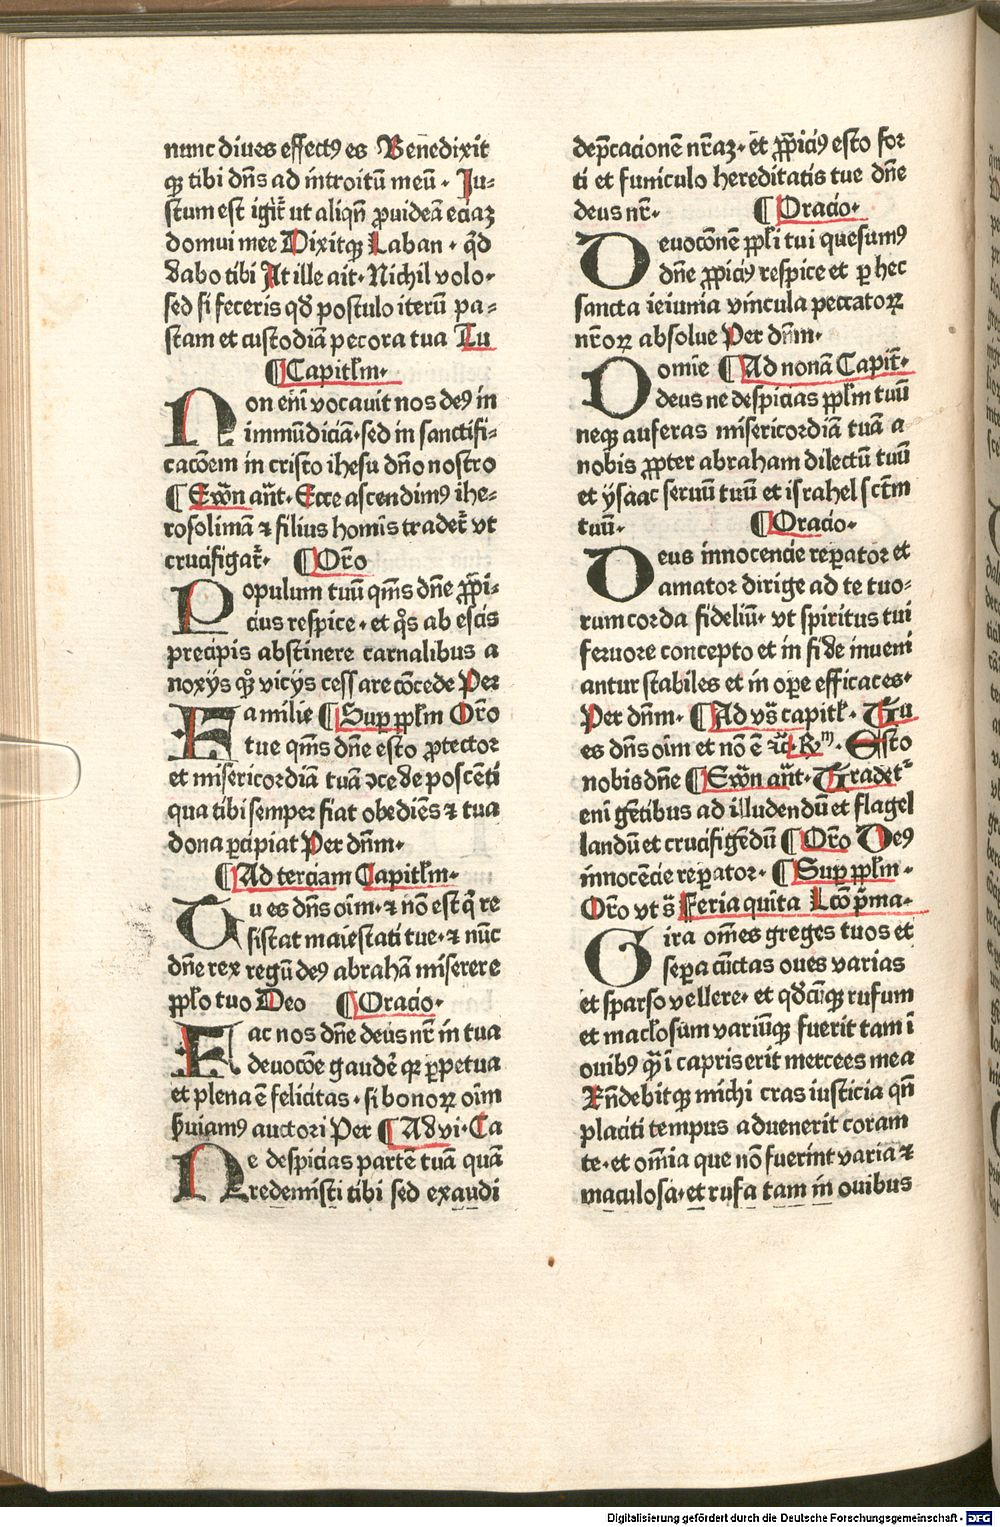 nunc diues effectꝰ es Benedixit
qꝫ tibi dñs ad introitũ meũ · Ju⸗
stum est igit᷑ ut aliqñ ꝓuideã eciaꝫ
domui mee Dixitqꝫ Laban · qͥd
dabo tibi At ille ait · Nichil volo ·
sed si feceris qď postulo iterũ pa⸗
stam et custodiã pecora tua Tu
¶ Capitƚm ·
Non em̃ vocauit nos deꝰ in
immũdiciã · sed in sanctifi⸗
cacõem in cristo ihesu dño nostro
¶ Ewͣn añt · Ecce ascendimꝰ ihe⸗
rosolimã ⁊ filius homĩs tradet᷑ vt
crucifigat᷑ · ¶ Orõ
Populum tuũ qm̃s dñe ꝓpi⸗
cius respice · et qͦs ab escis
precipis abstinere carnalibus a
noxijs qͦꝫ vicijs cessare cõcede Per
Familie ¶ Suꝑ ppƚm Orõ
tue qm̃s dñe esto ꝓtector
et misericordiã tuã ↄcede poscẽti
qua tibi semper fiat obediẽs ⁊ tua
dona ꝑcipiat Per dñm ·
¶ Ad terciam Capitƚm ·
Tu es dñs oĩm · ⁊ nõ est qͥ re
sistat maiestati tue · ⁊ nũc
dñe rex regũ deꝰ abrahã miserere
ppƚo tuo Deo ¶ Oracio ·
Fac nos dñe deus nr̃ in tua
deuocõe gaudẽ qꝛ ꝑpetua
et plena ẽ felicitas · si bonoꝝ oĩm
ẜuiamꝰ auctori Per ¶ Ad vi · Ca
Ne despicias partẽ tuã quã
redemisti tibi sed exaudi
dep̃cacionẽ nr̃aꝫ · et ꝓpiciꝰ esto for
ti et funiculo hereditatis tue dñe
deus nr̃ · ¶ Oracio ·
Deuocõnẽ ppƚi tui quesumꝰ
dñe ꝓpiciꝰ respice et ꝑ hec
sancta ieiunia vincula peccatoꝝ
nr̃oꝝ absolue Per dñm ·
Domĩe ¶ Ad nonã Capit᷑ ·
deus ne despicias ppƚm tuũ
neqꝫ auferas misericordiã tuã a
nobis ꝓpter abraham dilectũ tuũ
et ysaac seruũ tuũ et israhel sctm̃
tuũ · ¶ Oracio ·
Deus innocencie reꝑator et
amator dirige ad te tuo⸗
rum corda fideliũ · vt spiritus tui
feruore concepto et in fide inueni
antur stabiles et in oꝑe efficaces ·
Per dñm · ¶ Ad vs̃ capitƚ · Tu
es dñs oĩm et nõ ẽ ꝛč · Rͫ · Esto
nobis dñe ¶ Ewͣn añt · Tradet᷑
em̃ gẽtibus ad illudendũ et flagel
landũ et crucifigẽdũ ¶ Orõ Deꝰ
innocẽcie reꝑator · ¶ Suꝑ ppƚm ·
Orõ vt s̃ Feria quinta Lcõ p̃ma ·
Gira om̃es greges tuos et
seꝑa cũctas oues varias
et sparso vellere · et qďcũqꝫ rufum
et maclosum variũqꝫ fuerit tam ĩ
ouibꝰ qͣ̃ ĩ capris erit mercees mea
Rñdebitqꝫ michi cras iusticia qñ
placiti tempus aduenerit coram
te · et om̃ia que nõ fuerint varia ⁊
maculosa · et rufa tam in ouibus
Digitalisierung gefördert durch die Deutsche Forschungsgemeinschaft - DFG